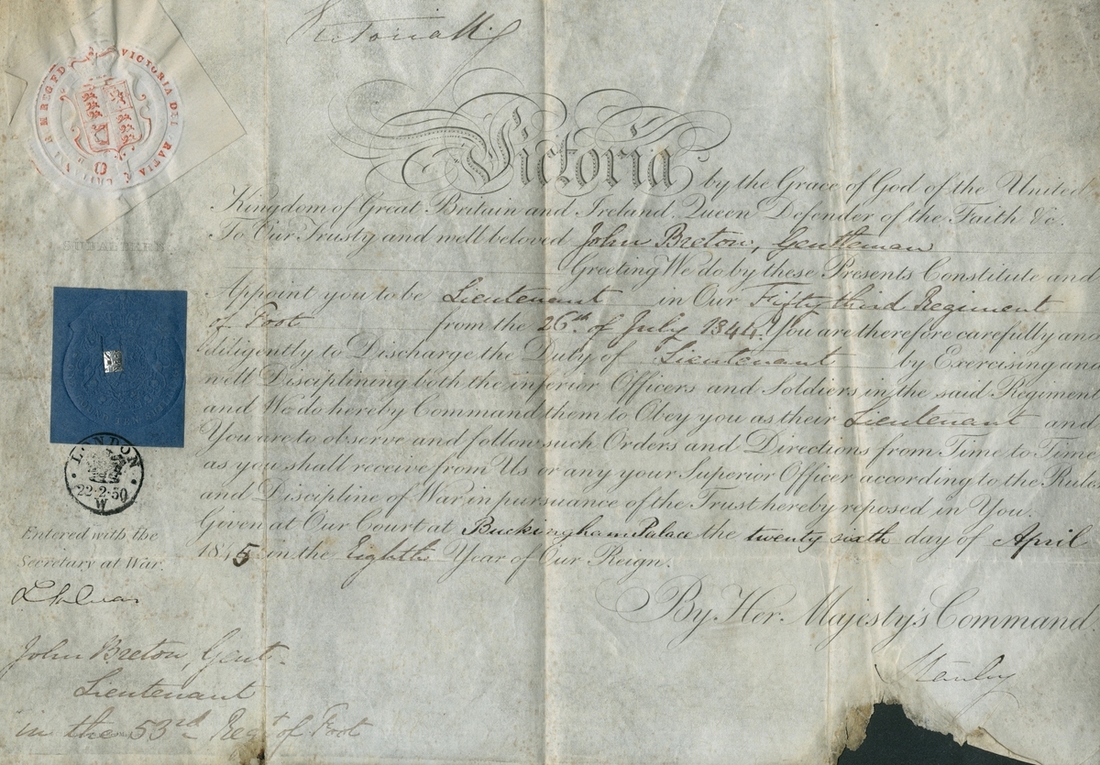 Victoria R
Victoria by the Grace of God of the United
Kingdom of Great Britain and Ireland Queen Defender of the Faith &c.
To Our Trusty and well beloved John Breton, Gentleman
Greeting We do by these Presents Constitute and
Appoint you to be Lieutenant in Our Fifty third Regiment
of Foot from the 26th of July 1844. You are therefore carefully and
diligently to Discharge the Duty of Lieutenant by Exercising and
well Disciplining both the inferior Officers and Soldiers in the said Regiment
and We do hereby Command them to Obey you as their Lieutenant and
You are to observe and follow such Orders and Directions from Time to Time
as you shall receive from Us or any your Superior Officer according to the Rules
and Discipline of War in pursuance of the Trust hereby reposed in You.
Given at Our Court at Buckingham Palace the twenty sixth day of April
1845 in the Eighth Year of Our Reign.
By Her Majesty's Command.
Stanley
VICTORIA DEI GRATIA
SUBALTERN
LONDON
22·2·50
W
Entered with the
Secretary at War.
John Breton, Gent.
Lieutenant
in the 53rd Regt of Foot